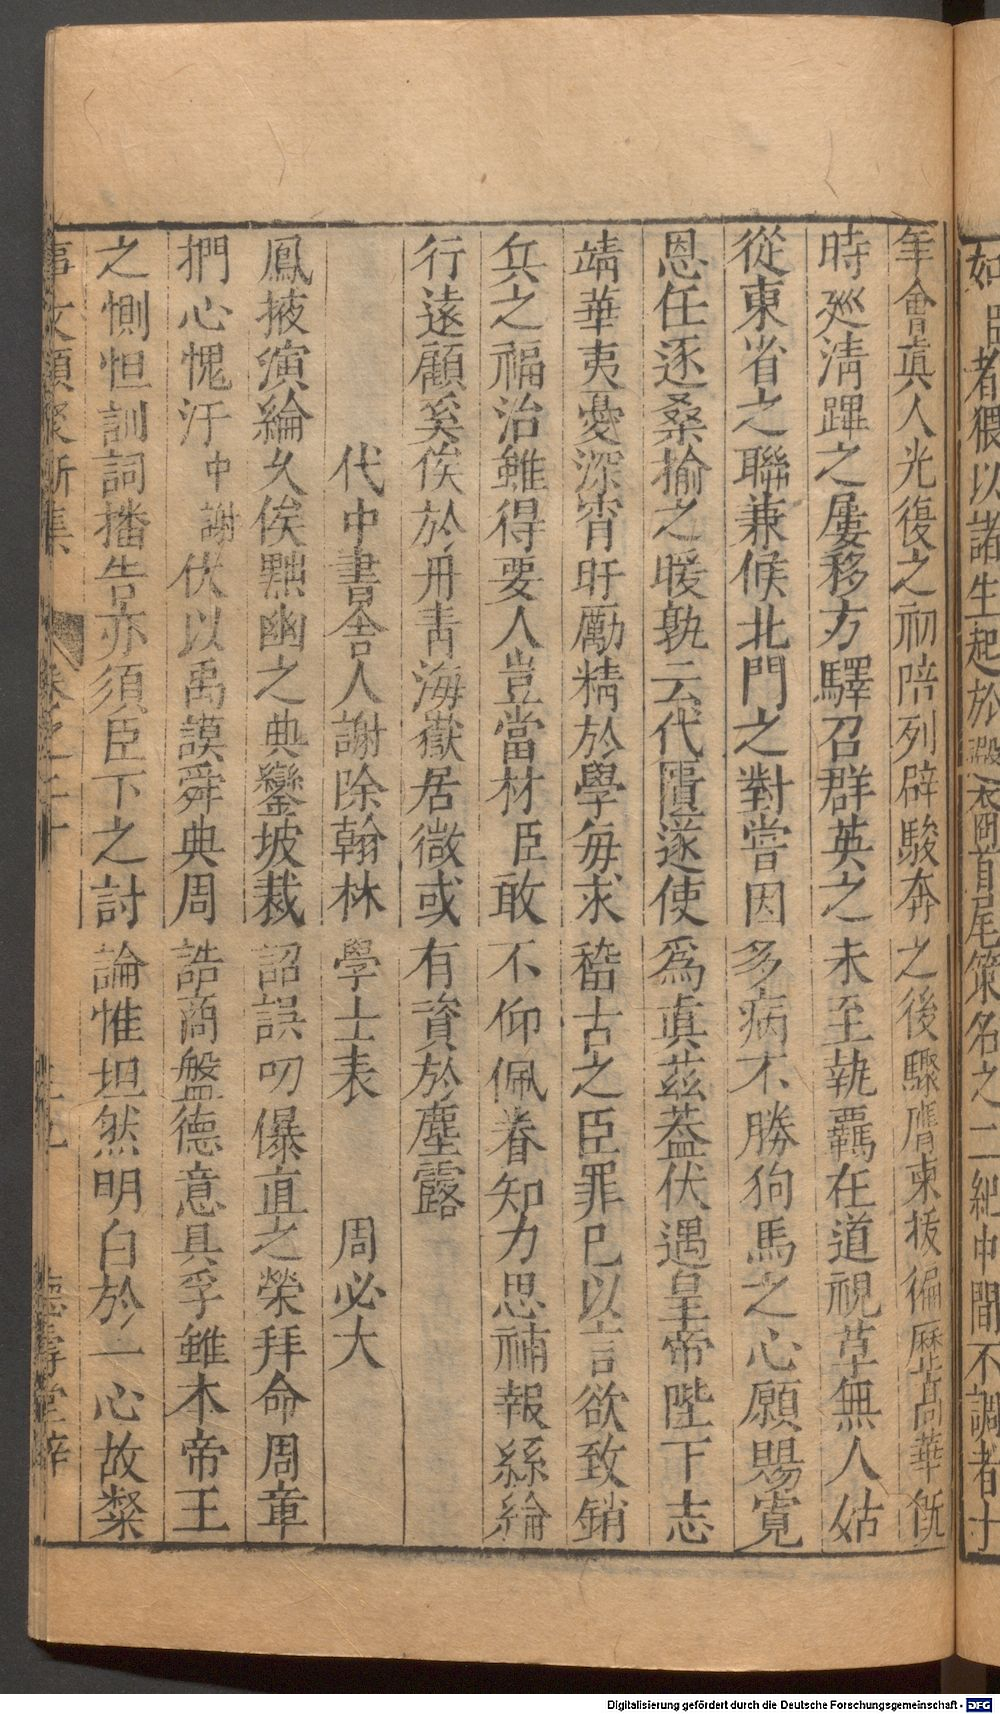 如臣者猥以諸生起於
首尾策名之二紀中間不調者十
年會眞人光復之初陪列辟駿奔之後驟膺柬拔徧歷苫高華旣
時廵淸蹕之屢移方驛召群英之未至執覊在道視草無人姑
從東省之聯兼候北門之對嘗因多病不勝狗馬之心願賜寛
恩任逐桑揄之暖孰云代匱遂使爲眞茲葢伏遇皇帝陛下志
靖華夷憂深宵旰勵精於學每求稽古之臣罪已以言欲致銷
兵之福治雖得要人豈當材臣敢不仰佩眷知力思補報絲綸
行遠顧奚俟於丹靑海嶽居微或有資於塵露
代中書舍人謝除翰林學士表 周必大
鳳掖演綸久俟黜幽之典鑾坡裁詔誤叨儤直之榮拜命周章
捫心愧汙中謝伏以禹謨舜典周誥商盤德意具孚雖本帝王
之惻怛訓詞播告亦須臣下之討論惟坦然明白於一心故粲
事文類聚新集 卷之二十 德壽堂梓
Digitalisierung gefördert durch die Deutsche Forschungsgemeinschaft - DFG